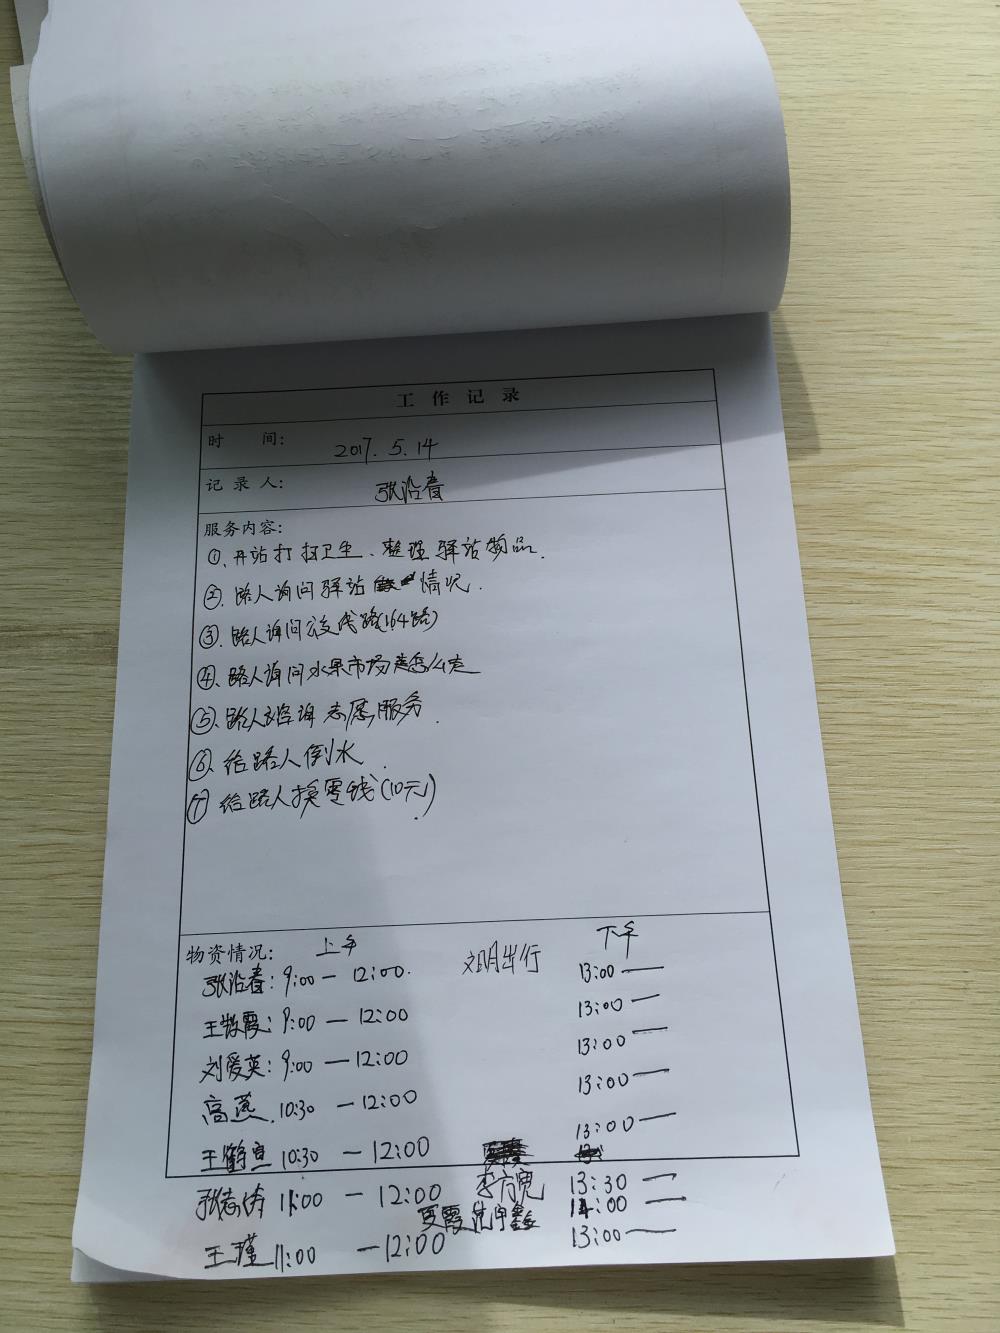 工作记录
时 间: 2017.5.14
记录人: 张沿春
服务内容:
①、开站打扫卫生、整理驿站物品.
②、路人询问驿站情况.
③、路人询问公交线路(164路)
④、路人询问水果市场怎么走
⑤、路人咨询志愿服务.
⑥、给路人倒水.
⑦给路人换零钱(10元)
物资情况: 上午 下午
张沿春: 9:00—12:00. 文明出行 13:00—
王 霞: 9:00—12:00 13:00—
刘爱英: 9:00—12:00 13:00—
高燕. 10:30—12:00 13:00—
王鹤宜 10:30—12:00 13:00—
张志涛 11:00—12:00 李方宽 13:30—
夏霞 14:00—
王瑾 11:00—12:00 13:00—